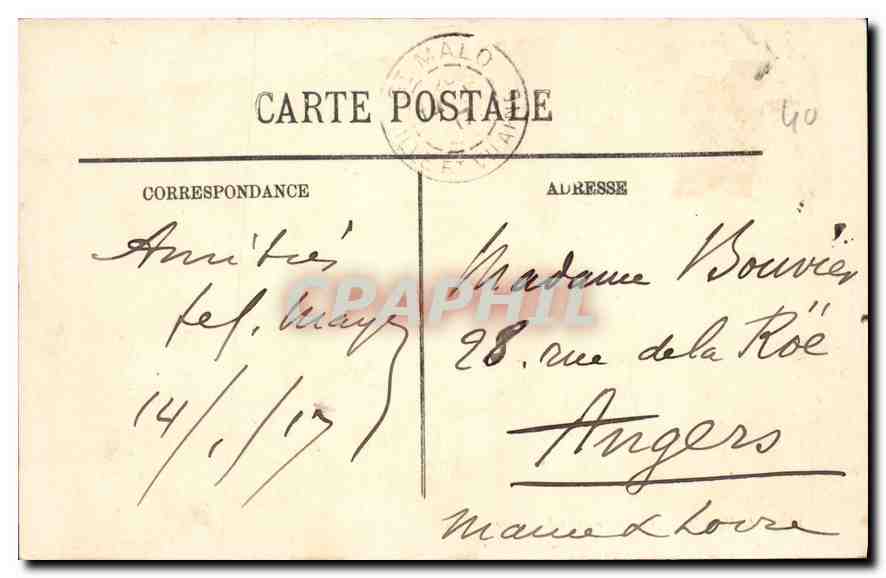 ST MALO
ILLE ET VILAINE
CARTE POSTALE
40
CORRESPONDANCE
Amitiés
14/1/17
ADRESSE
Madame Bouvier
28. rue de la Röe
Angers
Maine & Loire
CPAPHIL